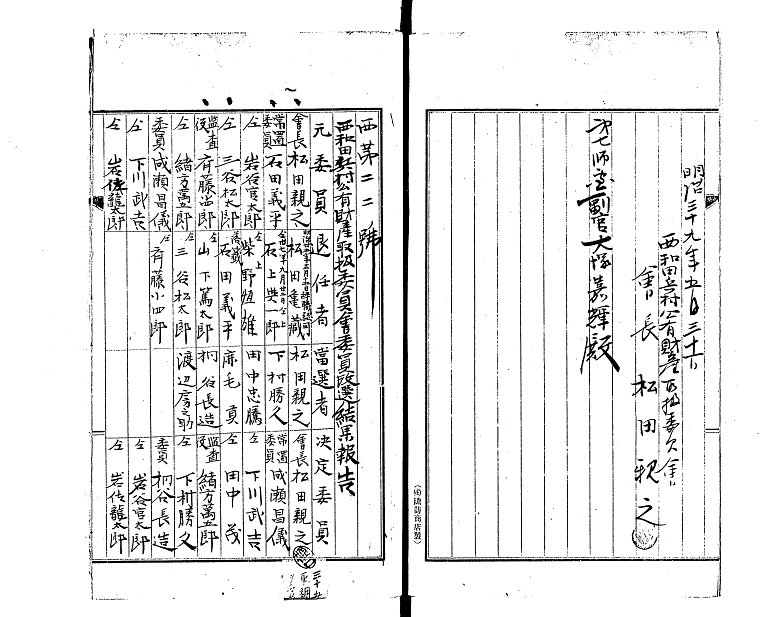 明治三十九年五月三十日
西和田兵村公有財産取扱委員会
會長 松田親之
第七師団副官大塚嘉輝殿
西第二二號
西和田兵村公有財産取扱委員會委員改選結果報告
元委員 退任者 當選者 決定委員
會長 松田親之 松田亀蔵 松田親之 會長 松田親之
常置委員 石田義平 石上與一郎 下村勝久 常置委員 成瀬昌儀
仝 岩谷官太郎 仝上 柴野恒雄 田中忠騰 仝 下川武吉
仝 三谷松太郎 石田義平 麻毛貢 仝 田中茂
監査役 斉藤治郎 仝 山下篤太郎 桐谷長造 監査役 緒方萬五郎
仝 緒方萬五郎 仝 三谷松太郎 渡辺房之助 仝 下村勝久
委員 成瀬昌儀 仝 斉藤小四郎 委員 桐谷長造
仝 下川武吉 仝 岩谷官太郎
仝 岩佐龍太郎 仝 岩佐龍太郎